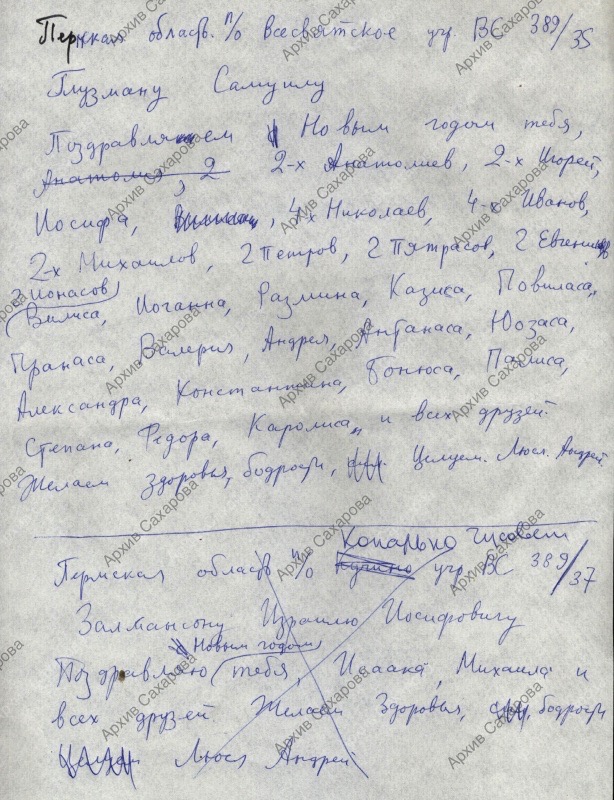 Пермская област. п/о Всесвятское учр. ВС 389/35
Глузману Самуилу
Поздравляем с Новым годом тебя,
Анатолия, 2 2-х Анатолиев, 2-х Игорей,
Иосифа, 4-х Николаев, 4-х Иванов,
2-х Михаилов, 2 Петров, 2 Пятрасов, 2 Евгениев
2 Ионасов
Вилиса, Иоганна, Размика, Казиса, Повиласа,
Пранаса, Валерия, Андрея, Антанаса, Юозаса,
Александра, Константина, Бонюса, Палиса,
Степана, Федора, Каролиса, и всех друзей.
Желаем здоровья, бодрости, Целуем. Люся. Андрей.
Копально Чусовской
Пермская област п/о Кучино учр. ВС 389/37
Залмансону Израилю Иосифовичу
с Новым годом
Поздравляю тебя, Исаака, Михаила и
всех друзей. Желаем здоровья, бодрости
Целуем Люся Андрей
Архив Сахарова